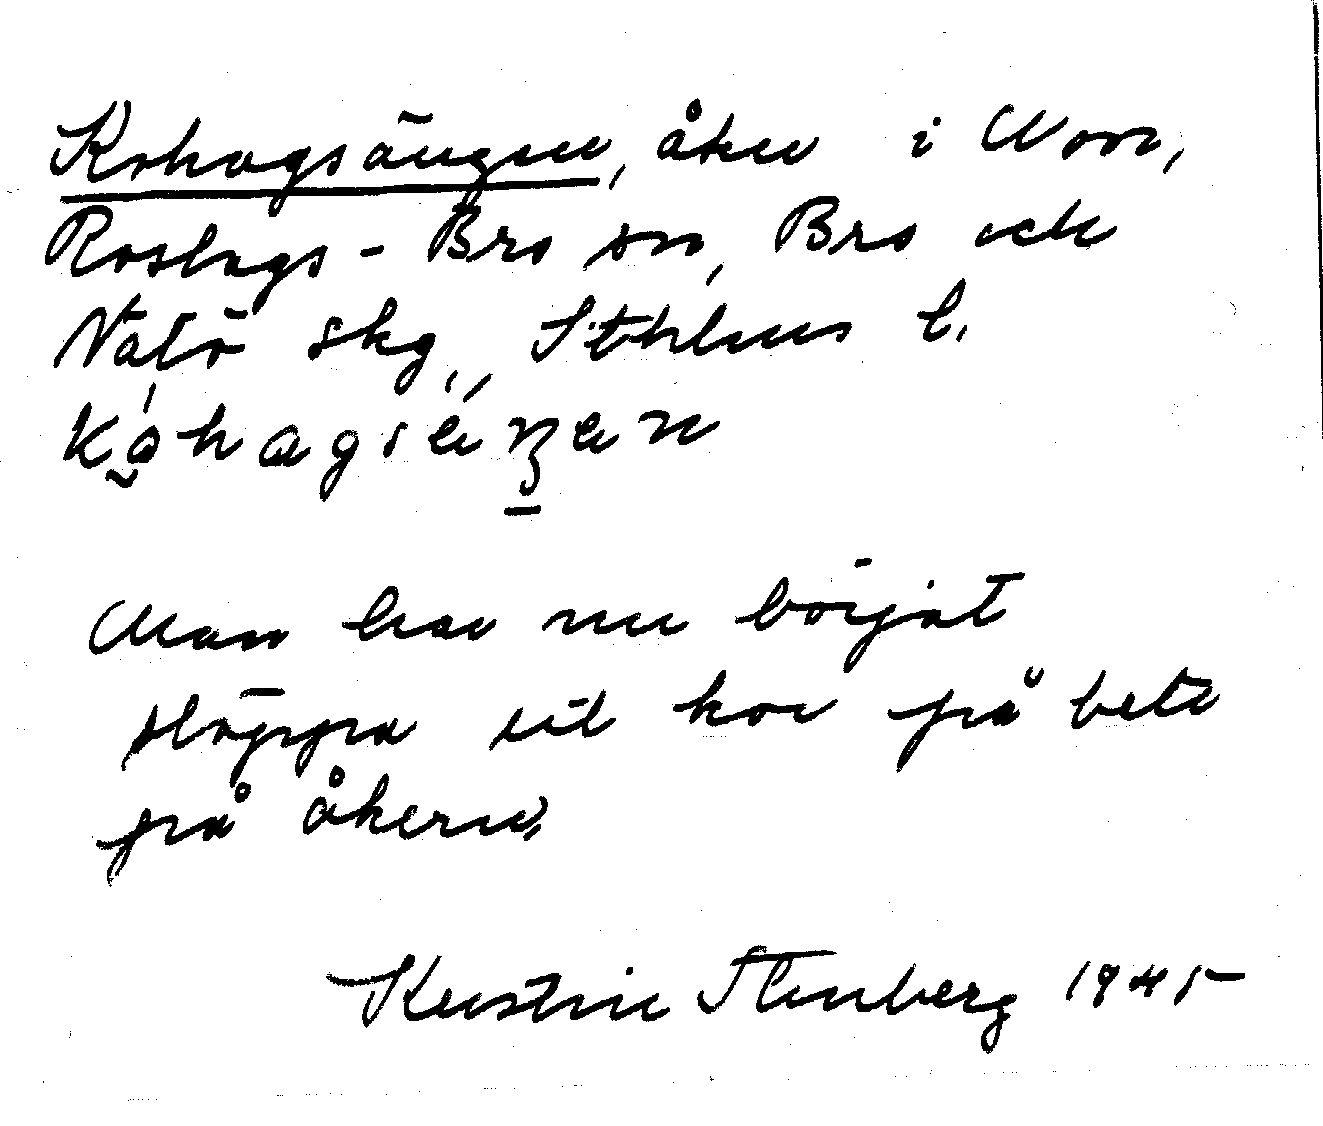 Kohagsängen, åker i Norr,
Roslags-Bro sn, Bro och
Vätö skg, Sthlms l.
Man har nu börjat
släppa ut kor på bete
på åkern.
Kerstin Stenberg 1945